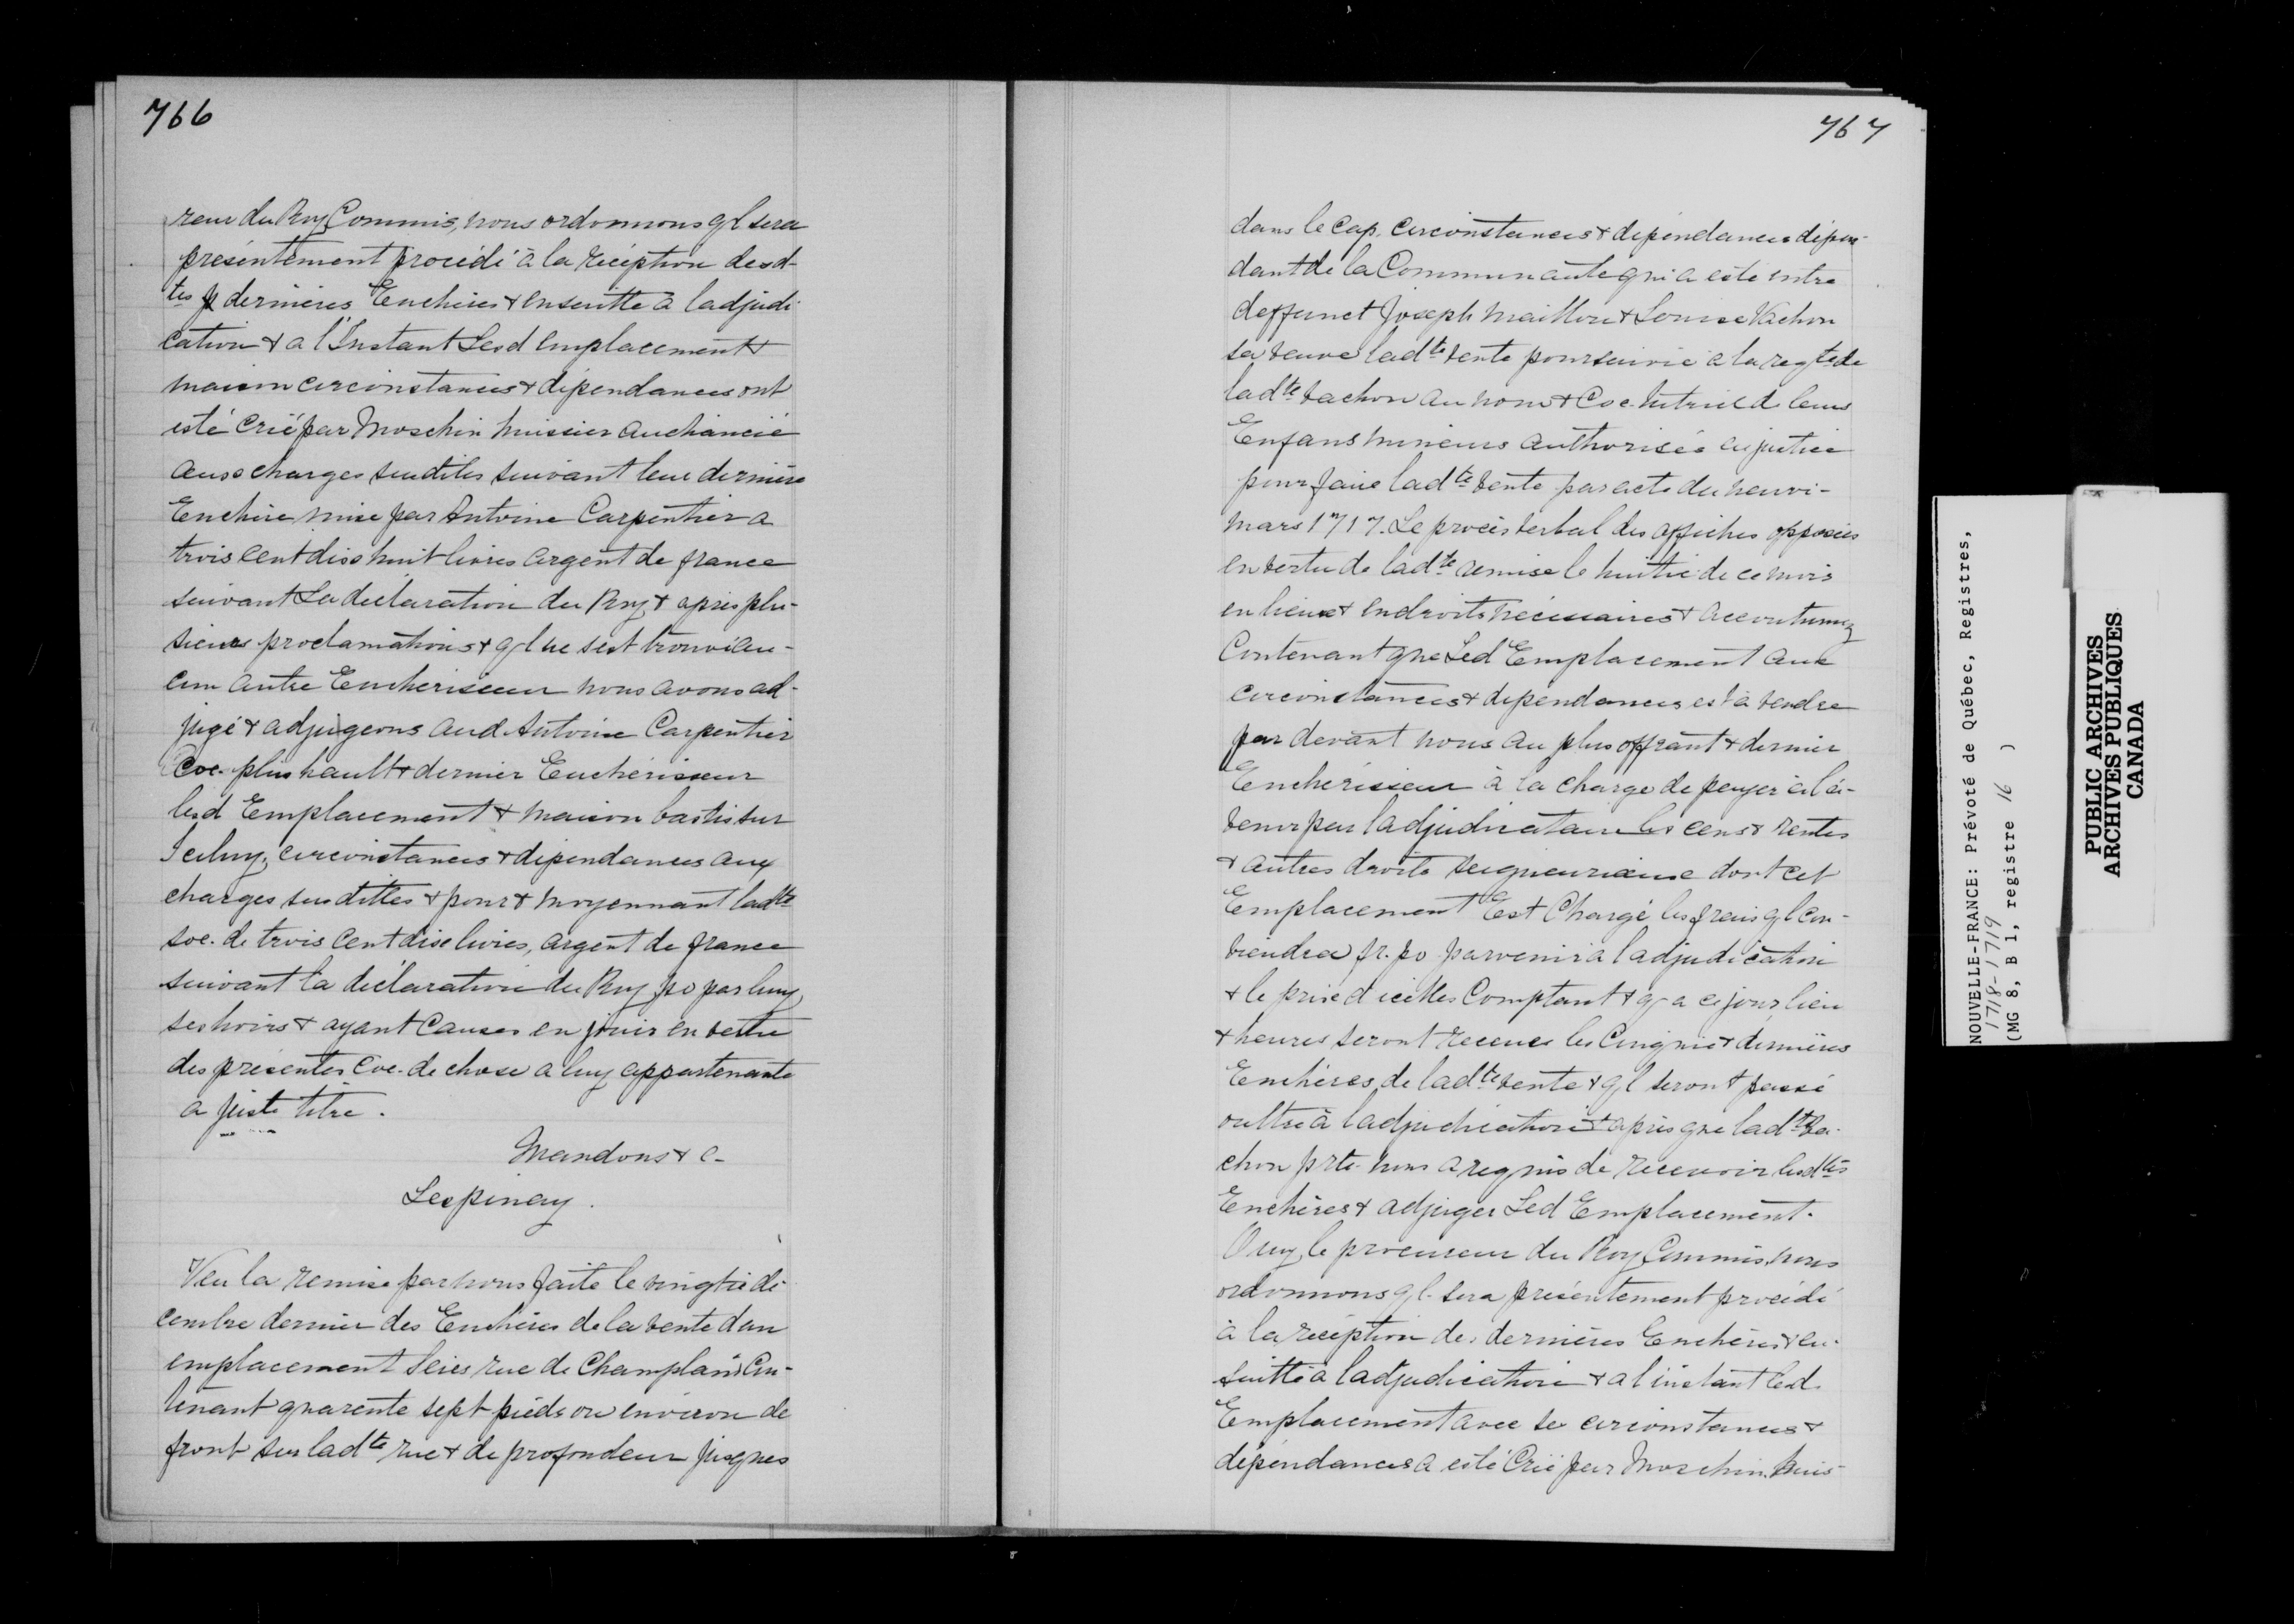 766
reur du Roy Commis, nous ordonnons ql sera
présentement procédé à la réception desd-
tes dernières Enchères & ensuitte à ladjudi
cation & a l'Instant Lesd emplacement &
maison circonstances & dépendances ont
esté Crié par Moschin huissier audiancié
aux charges sudites suivant leur dernière
Enchère mise par Antoine Carpentier a
trois cent dix huit livres argent de france
suivant La déclaration du Roy & après plu-
sieurs proclamations & ql ne sest trouvé au-
cun autre Encherisseur nous avons ad-
jugé & adjugeons aud. Antoine Carpentier
Coe. plus hault & dernier Enchérisseur
lesd Emplacement & maison bastis sur
Iceluy, circonstances & dépendances aux
charges susdittes & pour & moyennant ladte
soe. de trois cent dix livres, argent de france
suivant la déclaration du Roy po par luy,
ses hoirs & ayant Causes en jouir en vertu
des présentes Coe. de chose a luy appartenante
a juste titre.
Mandons & c-
Lespinay.
Veu la remise par nous faite le vingtiè dé-
cembre dernier des Enchères de la vente dun
emplacement Scies rue de Champlain Con-
tenant quarente sept pieds ou environ de
front sur ladte rue & de profondeur jusques
767
dans le Cap. circonstances & dépendances dépen-
dant de la Communauté qui a esté entre
deffunct Joseph Maillou & Louise Vachon
sa veuve ladte vente poursuivie a la reqte de
ladte Vachon au nom & Coe. tutrice d leurs
Enfans mineurs authorisée en justice
pour faire ladte vente par acte du neuvi-
mars 1717. Le procès verbal des affiches apposées
en vertu de ladte remise le huitiè de ce mois
en lieux & endroits nécessaires & accoutumez
Contenant que Led Emplacement aux
circonstances & dépendances est à vendre
par devant nous au plus offrant & dernier
Encherisseur à la charge de payer à la-
venir par ladjudicataire les cens & rentes
& autres droits seigneuriaux dont cet
Emplacement Est Chargé les frais ql con-
viendra fr. po parvenir a ladjudication
& le prix dicelles Comptant & q a ce jour, lieu
& heures seront receues les Cinqnie & dernières
Enchères de ladte vente & ql seront passé
oultre à ladjudication & après que ladte Va-
chon prte. nous a requis de recevoir lesdtes
Enchères & adjuger Led Emplacement.
Ouy, le procureur du Roy Commis, nous
ordonnons ql. sera présentement procédé
à la réception des dernières Enchères & en-
suitte à ladjudication & a linstant led.
Emplacement avec ses circonstances &
dépendances a esté Crié par Moschin. huis-
NOUVELLE-FRANCE: Prévoté de Québec, Registres,
1718-1719
(MG 8, B 1, registre 16 )
PUBLIC ARCHIVES
ARCHIVES PUBLIQUES
CANADA